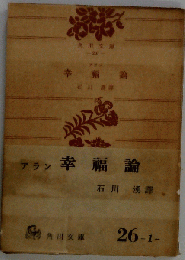 角川文庫
— 26 —
アラン
幸福論
石川湧譯
アラン 幸福論
石川湧譯
角川文庫 26-1-